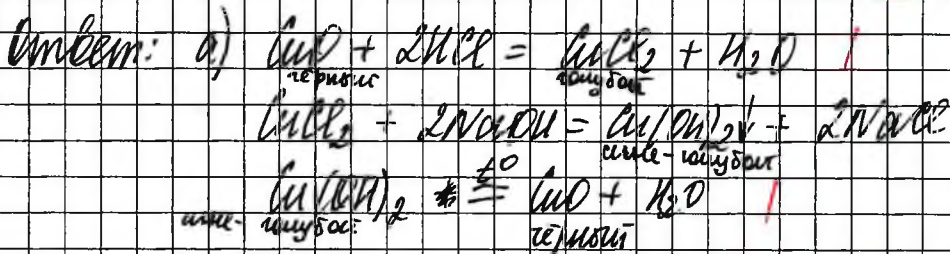 Ответ: а) CuO + 2HCl = CuCl₂ + H₂O
чёрный голубой
CuCl₂ + 2NaOH = Cu(OH)₂↓ + 2NaCl
сине-голубой
Cu(OH)₂ =t° CuO + H₂O
сине-голубой чёрный